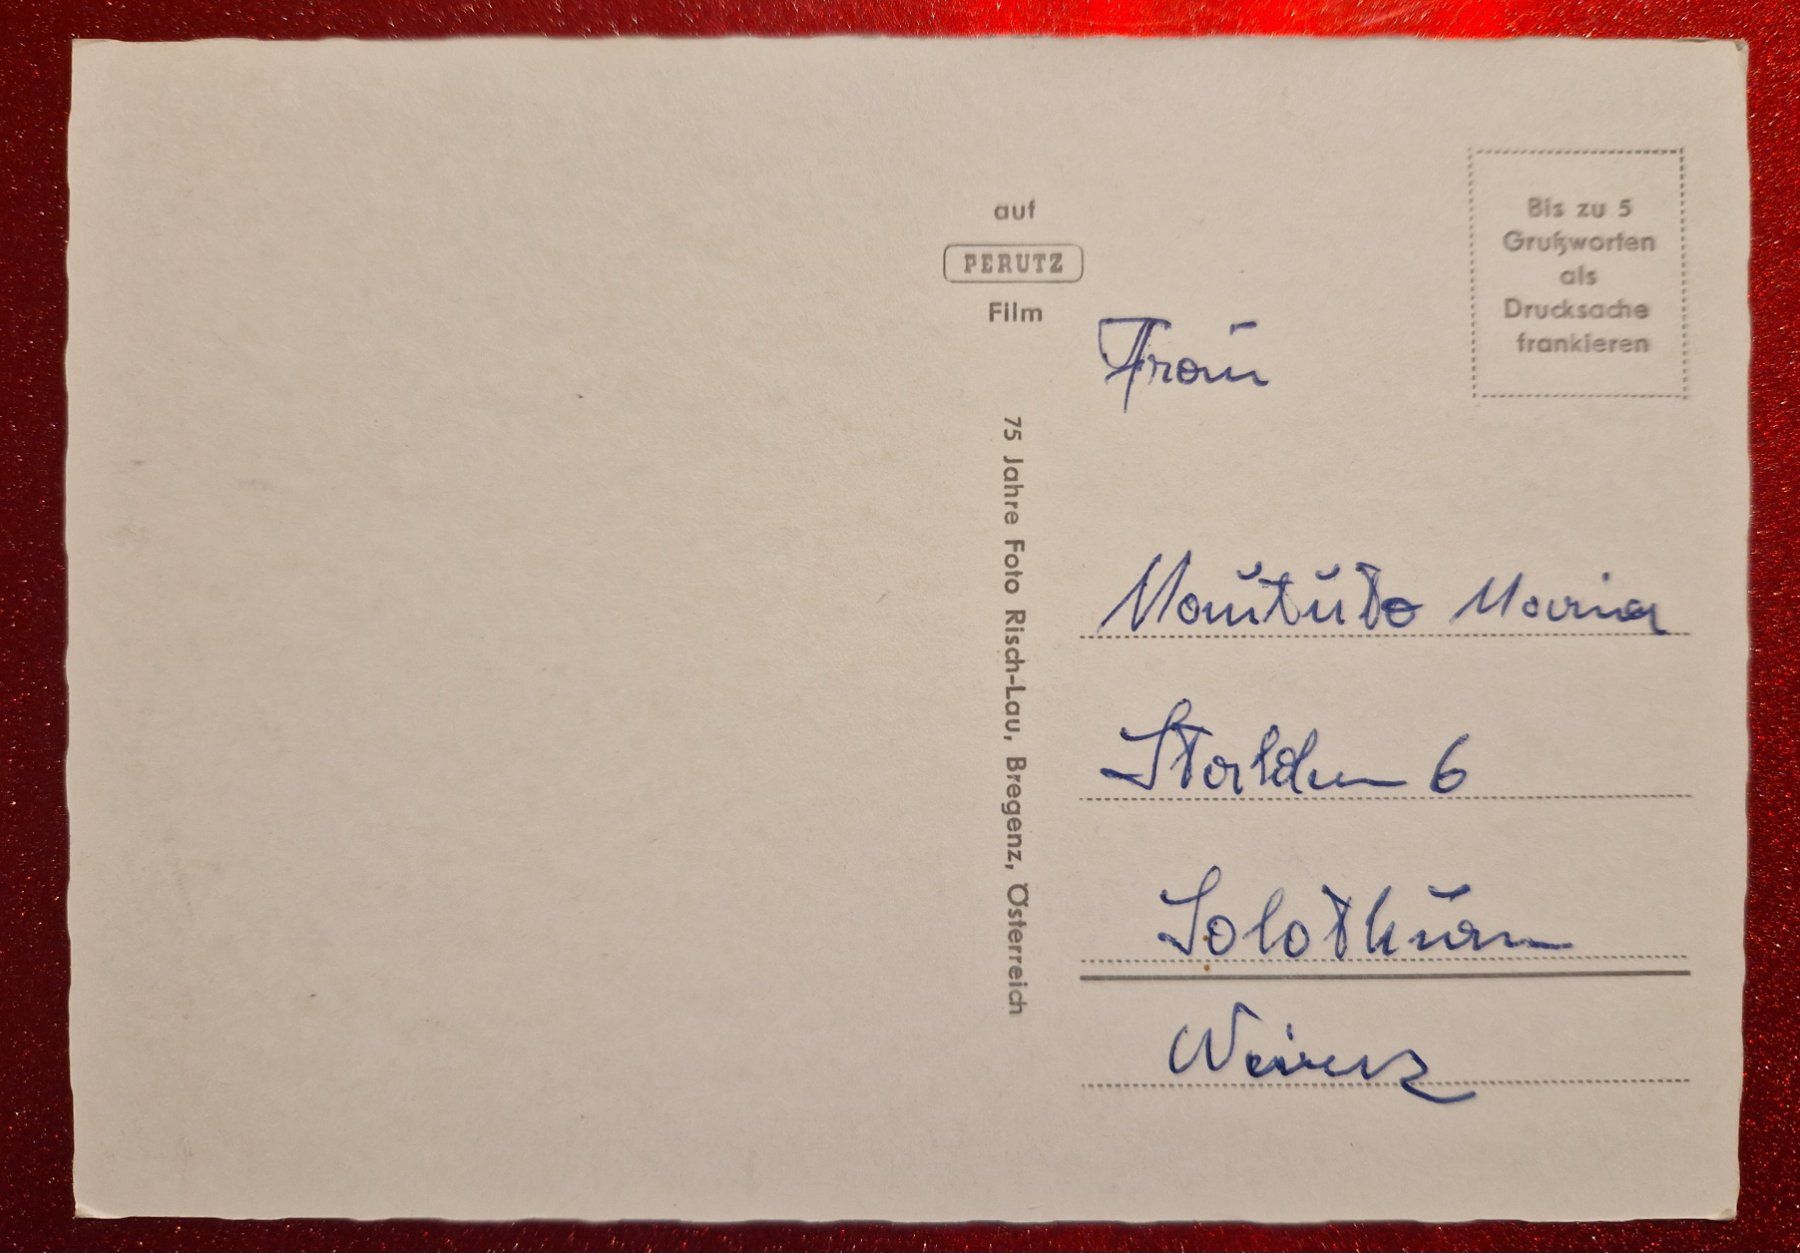 auf
PERUTZ
Film
75 Jahre Foto Risch-Lau, Bregenz, Österreich
Bis zu 5
Grußworten
als
Drucksache
frankieren
Frau
Maria
Stalden 6
Solothurn